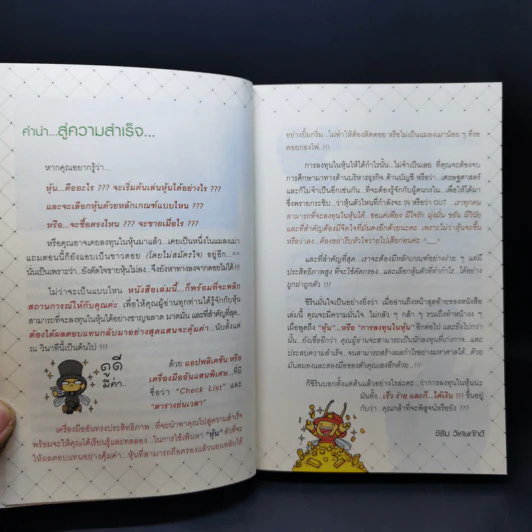 คำนำ...สู่ความสำเร็จ...
หากคุณอยากรู้ว่า...
หุ้น...คืออะไร ??? จะเริ่มต้นเล่นหุ้นได้อย่างไร ???
และจะเลือกหุ้นด้วยหลักเกณฑ์แบบไหน ???
หรือ...จะซื้อตรงไหน ??? จะขายเมื่อไร ???
หรือคุณอาจเคยลงทุนในหุ้นมาแล้ว...เคยเป็นหนึ่งในแมงเม่า
แถมตอนนี้ก็ยังแอบเป็นชาวดอย (โดยไม่สมัครใจ) อยู่อีก...^^
นั่นเป็นเพราะว่า...ยังตัดใจขายหุ้นไม่ลง...จึงยังหาทางลงจากดอยไม่ได้ !!!
ไม่ว่าจะเป็นแบบไหน หนังสือเล่มนี้...ก็พร้อมที่จะพลิก
สถานการณ์ให้กับคุณค่ะ เพื่อให้คุณผู้อ่านทุกท่านได้รู้จักกับหุ้น
สามารถที่จะลงทุนในหุ้นได้อย่างชาญฉลาด มาดมั่น และที่สำคัญที่สุด..
ต้องได้ผลตอบแทนกลับมาอย่างสุดแสนจะคุ้มค่า...นับตั้งแต่
ณ วินาทีนี้เป็นต้นไป !!!
ดูดี
มีค่า..
ด้วย แอปพลิเคชัน หรือ
เครื่องมืออันแสนพิเศษ...ที่มี
ชื่อว่า "Check List" และ
"ตารางย่นเวลา"
เครื่องมืออันทรงประสิทธิภาพ.. ที่จะนำพาคุณไปสู่ความสำเร็จ
พร้อมจะให้คุณได้เรียนรู้และทดลอง...ในการใช้เฟ้นหา "หุ้น" ตัวที่จะ
ให้ผลตอบแทนอย่างคุ้มค่า.. หุ้นที่สามารถถือครองแล้วนอนหลับได้
อย่างยิ้มกริ่ม...ไม่ทำให้ต้องติดดอย หรือไม่เป็นแมลงเม่าน้อย ๆ ที่รอ
คอยกองไฟ..!!!
การลงทุนในหุ้นให้ได้กำไรนั้น...ไม่จำเป็นเลย ที่คุณจะต้องจบ
การศึกษามาทางด้านบริหารธุรกิจ ด้านบัญชี หรือว่า...เศรษฐศาสตร์
และก็ไม่จำเป็นอีกเช่นกัน...ที่จะต้องรู้จักกับผู้คนวงใน...เพื่อให้ได้มา
ซึ่งพรายกระซิบ...ว่าหุ้นตัวไหนที่กำลังจะ IN หรือว่า OUT เราทุกคน
สามารถที่จะลงทุนในหุ้นได้ ขอแค่เพียง มีใจรัก มุ่งมั่น ขยัน มีวินัย
และที่สำคัญต้องมีจิตใจที่มั่นคงอีกด้วยนะคะ เพราะไม่ว่าหุ้นจะขึ้น
หรือว่าลง...ต้องอย่ารีบหัวใจวายไปเสียก่อนค่ะ ^__^
และที่สำคัญที่สุด...เราจะต้องมีหลักเกณฑ์อย่างง่าย ๆ แต่มี
ประสิทธิภาพสูง ที่จะใช้คัดกรอง..และเลือกหุ้นตัวที่ทำกำไร..ได้อย่าง
ถูกเผ่าถูกตัว !!!
ซิรินมั่นใจเป็นอย่างยิ่งว่า เมื่ออ่านถึงหน้าสุดท้ายของหนังสือ
เล่มนี้ คุณจะมีความมั่นใจ...ไม่กลัว ๆ กล้า ๆ รวมถึงทำหน้างง ๆ
เมื่อพูดถึง "หุ้น"...หรือ "การลงทุนในหุ้น" อีกต่อไป และยิ่งไปกว่า
นั้น...ยังเชื่ออีกว่า คุณผู้อ่านจะสามารถเป็นนักลงทุนที่เก่งกาจ..และ
ประสบความสำเร็จ..จนสามารถสร้างผลกำไรอย่างมหาศาลได้..ด้วย
มันสมองและสองมือของตัวคุณเองอีกด้วย...
ก็ซิรินบอกตั้งแต่ต้นแล้วอย่างไรล่ะคะ..ว่าการลงทุนในหุ้นน่ะ
มันทั้ง.. เร็ว ง่าย และก็...ได้เงิน !!! ขึ้นอยู่
กับว่า.. คุณกล้าที่จะพิสูจน์หรือยัง ???
ซิริน